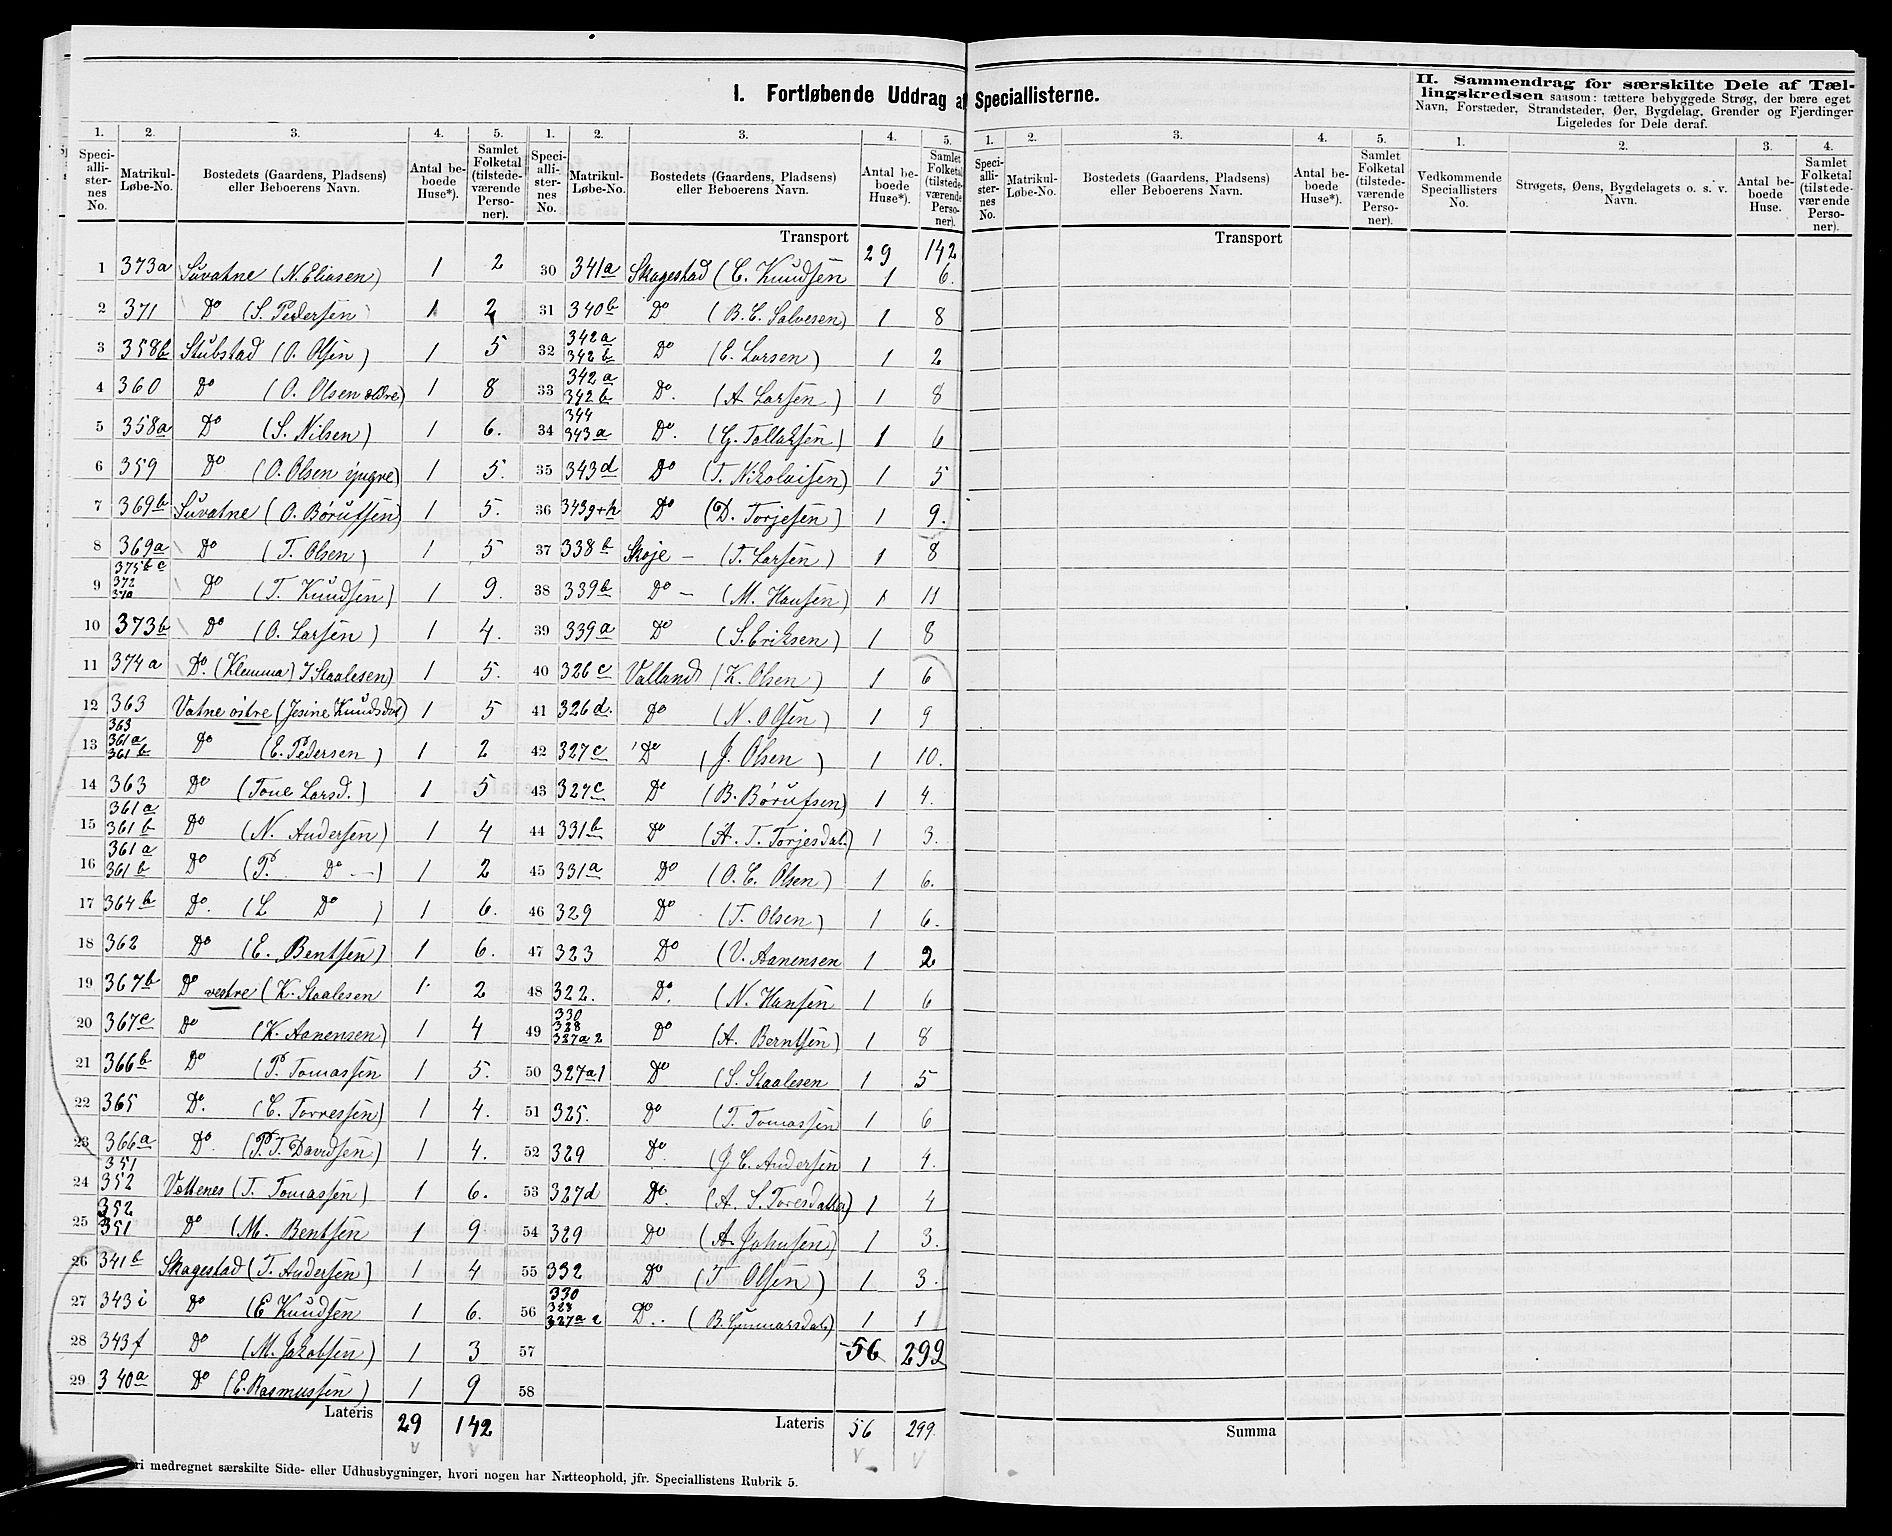 I. Fortløbende Uddrag af Speciallisterne.
1. 2. 3. 4. 5. 1. 2. 3. 4. 5.
Speciallisternes No. Matrikul-Løbe-No. Bostedets (Gaardens, Pladsens) eller Beboerens Navn. Antal beboede Huse*). Samlet Folketal (tilstedeværende Personer). Speciallisternes No. Matrikul-Løbe-No. Bostedets (Gaardens, Pladsens) eller Beboerens Navn. Antal beboede Huse*). Samlet Folketal (tilstedeværende Personer).
1 373a Suvatne (N. Eliasen) 1 2
2 371 Do (S. Pedersen) 1 2
3 358b Stubstad (O. Olsen) 1 5
4 360 Do (O. Olsen ældre) 1 8
5 358a Do (S. Nilsen) 1 6.
6 359 Do (O. Olsen yngre) 1 5.
7 369b Suvatne (O. Børufsen) 1 5.
8 369a Do (T. Olsen) 1 5
9 375b c 372 371a Do (T. Knudsen) 1 9.
10 373b Do (O. Larsen) 1 4.
11 374a Do. (Klemma) T Staalesen) 1 5.
12 363 Vatne oitre (Jesine Knudsdat) 1 5
13 363 361a 361b Do (E. Pedersen) 1 2
14 363 Do (Tone Larsd.) 1 5
15 361a 361b Do (N. Andersen) 1 4
16 361a 361b Do (P. Do —) 1 2
17 364b Do. (L Do) 1 6.
18 362 Do (E. Bentsen) 1 6.
19 367b Do vestre (K. Staalesen 1 2
20 367c Do (K. Aanensen) 1 4
21 366b Do (P. Tomassen 1 5.
22 365 Do. (C. Torressen) 1 4.
23 366a Do. (P. T. Davidsen) 1 4.
24 351 352 Vottenes (T. Tomassen) 1 6.
25 352 351 Do (M. Bentsen 1 9
26 341b Skagestad (T. Andersen) 1 4
27 343i Do (E Knudsen 1 6.
28 343f Do (M. Jakobsen) 1 3
29 340a Do (E. Rasmussen) 1 9
Lateris 29 142
Transport 29 142
30 341a Skagestad (C. Knudsen 1 6.
31 340b Do. (B. C. Salvesen) 1 8
32 342a 342b Do (E. Larsen) 1 2
33 342a 342b Do. (A Larsen) 1 8
34 344 343a Do. (G. Tollaksen) 1 6
35 343d Do (T. Nikolaisen) 1 5
36 343g+h Do (D. Torjesen) 1 9.
37 338b Skoje — (T. Larsen) 1 8
38 339b Do — (M. Hansen) 1 11
39 339a Do (S. Eriksen) 1 8
40 326c Valland (K. Olsen) 1 6
41 326d. Do (N. Olsen) 1 9
42 327c Do (J. Olsen) 1 10.
43 327c Do (B. Børufsen) 1 4.
44 331b Do (A. T. Torjesdat.) 1 3.
45 331a Do (O. C. Olsen) 1 6.
46 329 Do (T. Olsen) 1 6.
47 323 Do (V. Aanensen 1 2
48 322. Do. (N. Hansen 1 6
49 330 328 327a2 Do (A. Berntsen) 1 8
50 327a1 Do (S. Staalesen 1 5
51 325. Do (T. Tomassen 1 6
52 329 Do. (J C. Andersen 1 4.
53 327d Do. (A. S. Toresdatter) 1 4
54 329 Do (A. Johnsen) 1 3.
55 332 Do (T Olsen) 1 3.
56 330 328 327a2 Do.. (B. Gunnarsdat.) 1 1
57 56 299
58
Lateris 56 299.
medregnet særskilte Side- eller Udhusbygninger, hvori nogen har Natteophold, jfr. Speciallistens Rubrik 5.
1. 2. 3. 4. 5.
Speciallisternes No. Matrikul-Løbe-No. Bostedets (Gaardens, Pladsens) eller Beboerens Navn. Antal beboede Huse*). Samlet Folketal (tilstedeværende Personer).
Transport
Summa
II. Sammendrag for særskilte Dele af Tæl-
lingskredsen saasom: tættere bebyggede Strøg, der bære eget
Navn, Forstæder, Strandsteder, Øer, Bygdelag, Grender og Fjerdinger
Ligeledes for Dele deraf.
1. 2. 3. 4.
Vedkommende Speciallisters No. Strøgets, Øens, Bygdelagets o. s. v. Navn. Antal beboede Huse. Samlet Folketal (tilstedeværende Personer).